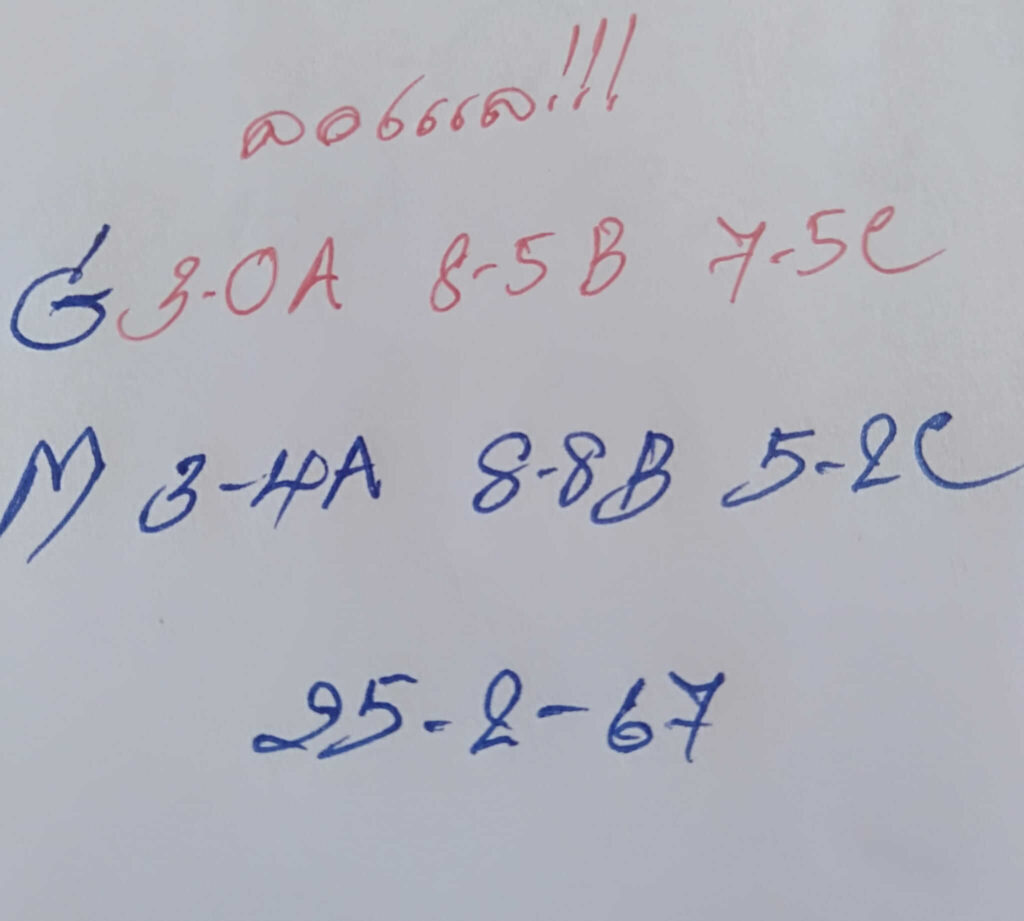 ลอรแล!!!
G 3-0A 8-5B 7-5C
M 3-4A 8-8B 5-2C
25-2-67